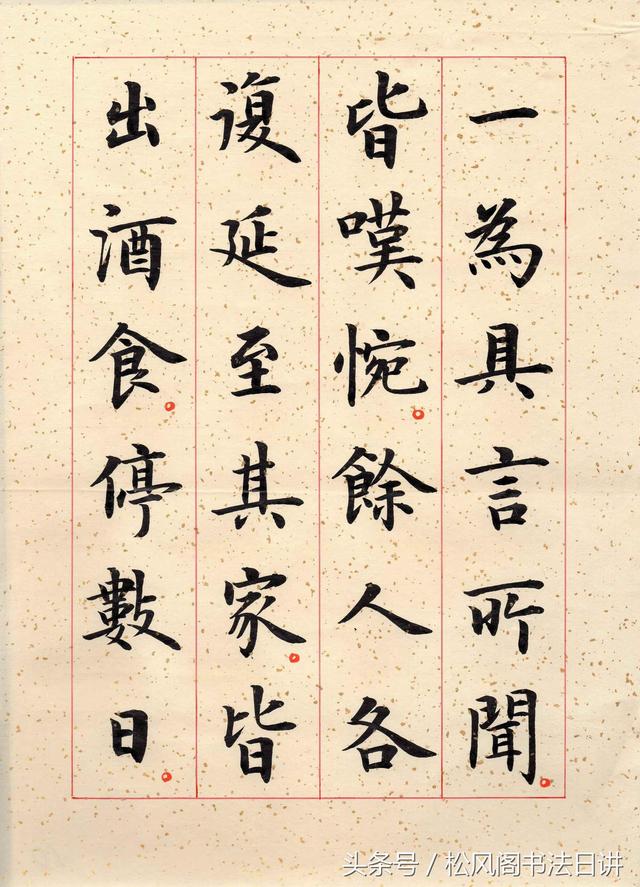 一為具言所聞
皆嘆惋餘人各
復延至其家皆
出酒食停數日
头条号／松风阁书法日讲